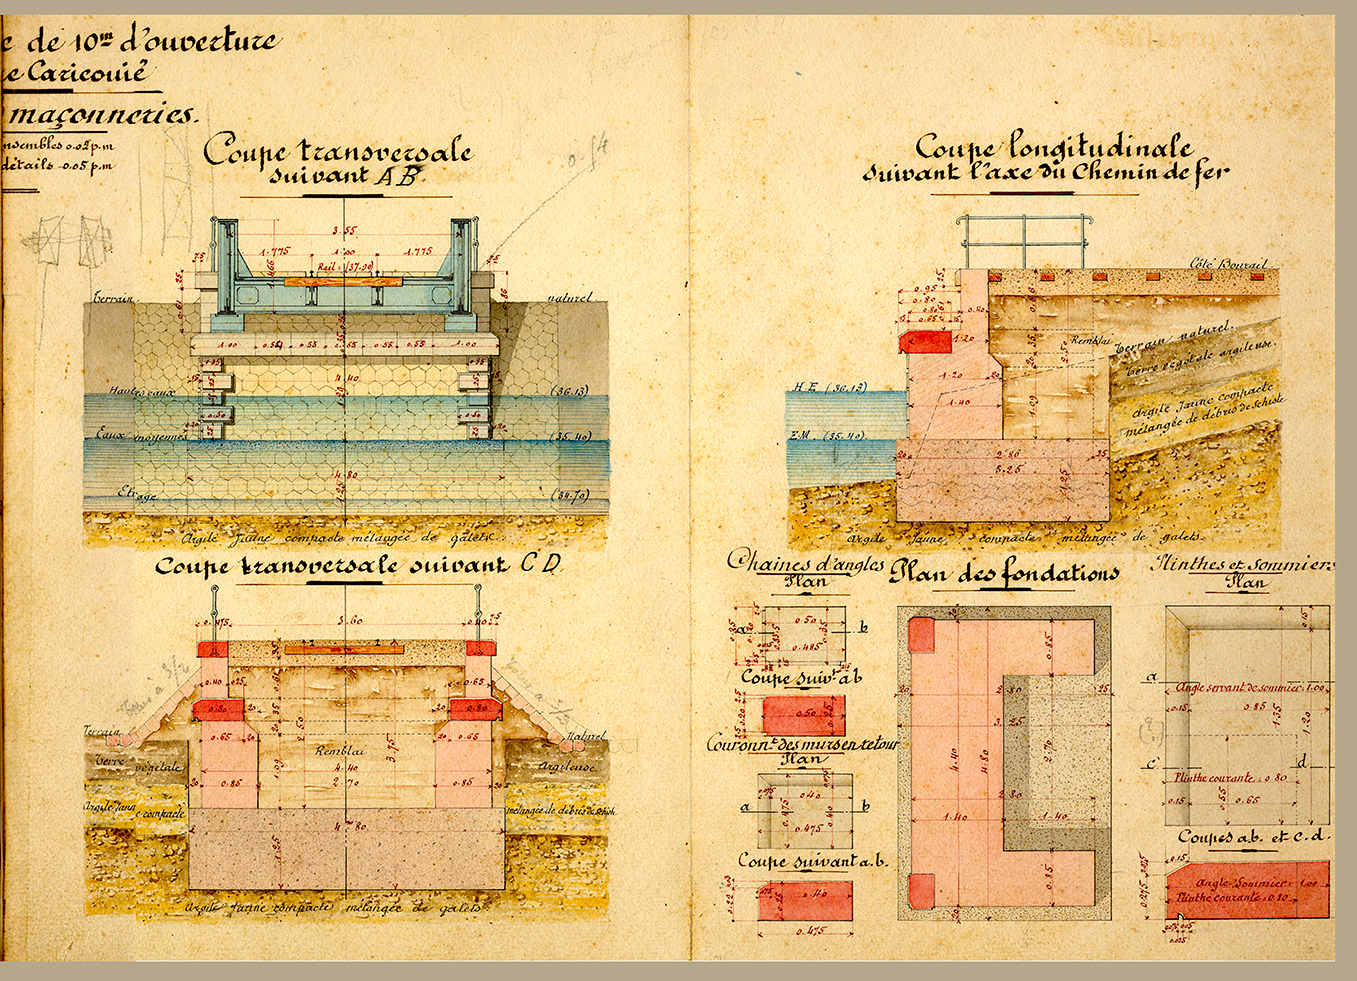 de 10m d'ouverture
Caricouié
maçonneries.
nsembles 0.02 p.m
détails 0.05 p.m
Coupe transversale
suivant AB.
0.54
3.55
1.775 1.00 1.775
Rail = (37.00)
Terrain naturel
1.00 0.55 0.55 0.55 0.55 1.00
4.40
Hautes eaux (36.13)
Eaux moyennes (35.40)
4.80
1.25
Etiage (34.70)
Argile Jaune compacte mélangée de galets.
Coupe longitudinale
suivant l'axe du Chemin de fer
Côté Bourail
0.95
0.80
0.65
1.20
Remblai
Terrain naturel.
Terre végétale argileuse.
Argile Jaune compacte
mélangée de débris de schiste
H.E. (36.13)
1.20 20
1.40
1.29
(35.40)
20 2.80 25
3.25
1.25
Argile Jaune compacte mélangée de galets.
Coupe transversale suivant CD
3.60
0.40 25
0.65
0.80
20
0.80
0.65
20
20
0.65
Terrain
Naturel
Remblai
4.40
Terre végétale
Argileuse
0.85 2.70 0.85
1.29
3.75
Argile Jaun
e compacte
mélangée de débris de schist.
4m80
1.25
Argile Jaune compacte mélangée de galets.
Chaines d'angles
Plan
0.50
a b
0.485
Coupe suivt ab
0.50
Couronnt des murs en retour
Plan
0.40
a b
0.475
0.475
Coupe suivant a.b.
0.40
0.475
Plan des fondations
20
0.85
20 2.80 25
3.25
4.40
4.80
2.70
2.80
1.40 1.40
0.85
20
Plinthes et Sommiers
Plan
0.15
a
Angle servant de sommier: 1.00
0.15 0.85
1.35
1.20
c d
Plinthe courante: 0.80
0.15 0.65
0.55
Coupes a.b. et c.d.
0.15
0.275
Angle Sommier: 1.00
Plinthe courante: 0.80